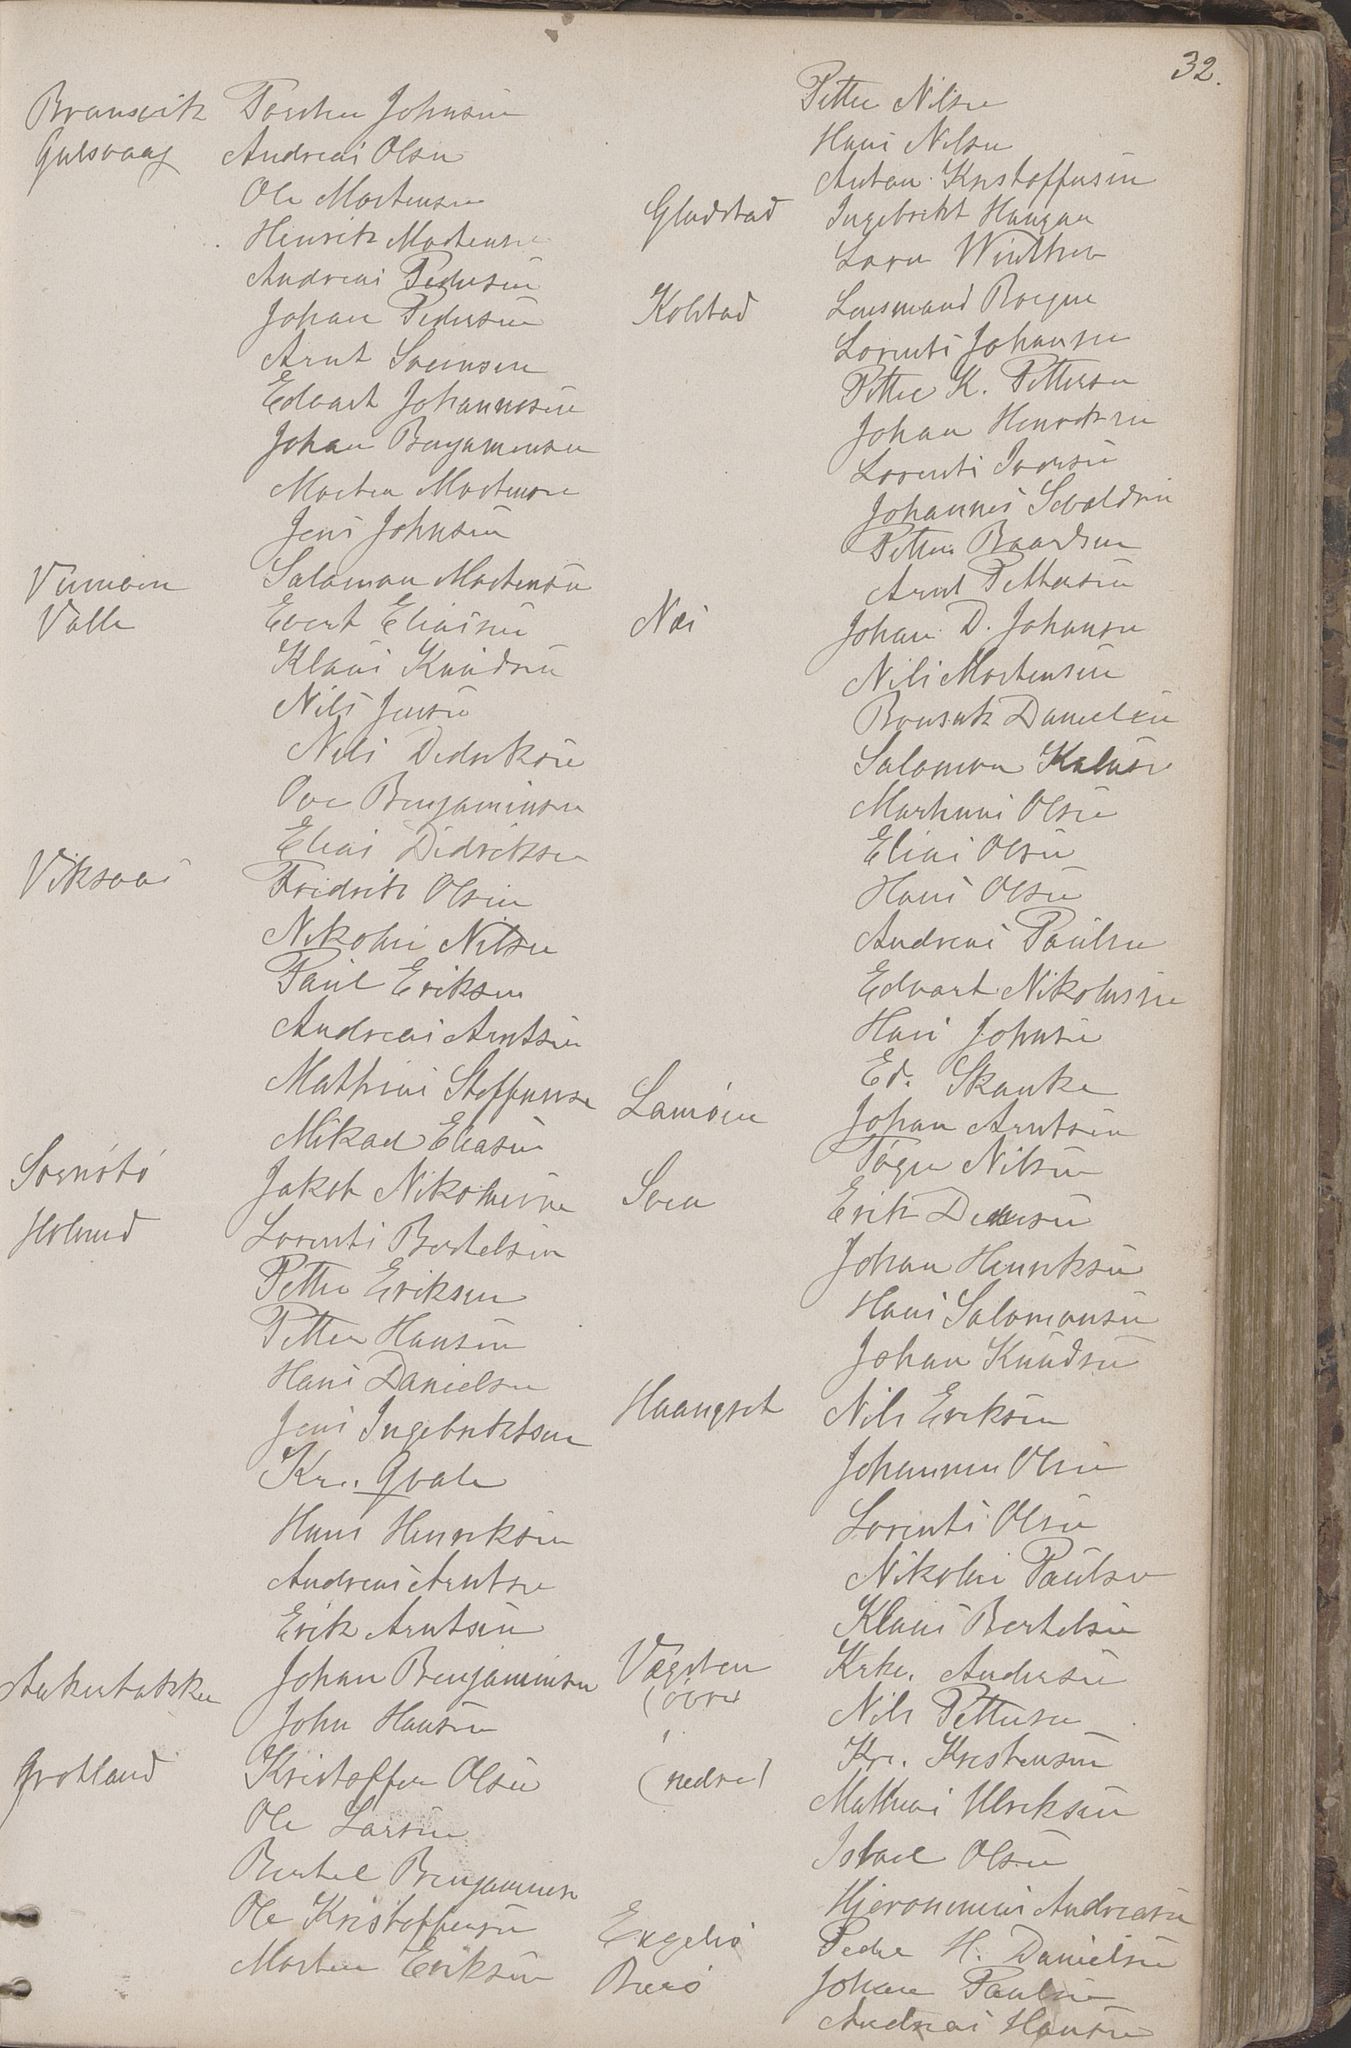 32.
Bransvik Torsten Johnsen
Gulsvaag Andreas Olsen
Ole Mortensen
Henrik Mortensen
Andreas Pedersen
Johan Pedersen
Arnt Sveinsen
Edvart Johannesen
Johan Benjaminsen
Morten Mortensen
Jens Johnsen
Salamon Mortensen
Valle Evert Eliassen
Klaus Knudsen
Nils Jensen
Nils Didriksen
Ove Benjaminsen
Elias Didriksen
Viksaas Fridrik Olsen
Nikolai Nilsen
Paul Eriksen
Andreas Arntsen
Mathias Steffensen
Mikael Eliasen
Jakob Nikolaisen
Holand Lorents Bertelsen
Petter Eriksen
Petter Hansen
Hans Danielsen
Jens Ingebriktsen
Kr. Qvale
Hans Henriksen
Andreas Arntsen
Erik Arntsen
Johan Benjaminsen
John Hansen
Grotland Kristoffer Olsen
Ole Larsen
Bertel Benjaminsen
Ole Kristoffersen
Morten Eriksen
Petter Nilsen
Hans Nilsen
Anton Kristoffersen
Gladstad Ingebrikt Haugan
Kolstad Lensmand Borgen
Lorents Johansen
Petter K. Pettersen
Johan Henriksen
Lorents Iversen
Johannes Sevaldsen
Petter Baardsen
Arnt Pettersen
Nes Johan D. Johansen
Nils Mortensen
Danielsen
Salamon
Markus Olsen
Elias Olsen
Hans Olsen
Andreas Paulsen
Edvart Nikolaisen
Hans Johnsen
Ed. Skanke
Johan Arntsen
Nilsen
Erik
Johan Henriksen
Hans Salomonsen
Johan Knudsen
Haangset Nils Eriksen
Johannes Olsen
Lorents Olsen
Nikolai Paulsen
Klaus Bertelsen
Vægsten Andersen
(övre) Nils Pettersen
Kr. Kristensen
(nedre) Mathias Ulriksen
Israel Olsen
Hjeronimus Andreasen
Peder H. Danielsen
Johan Paulsen
Andreas Hansen